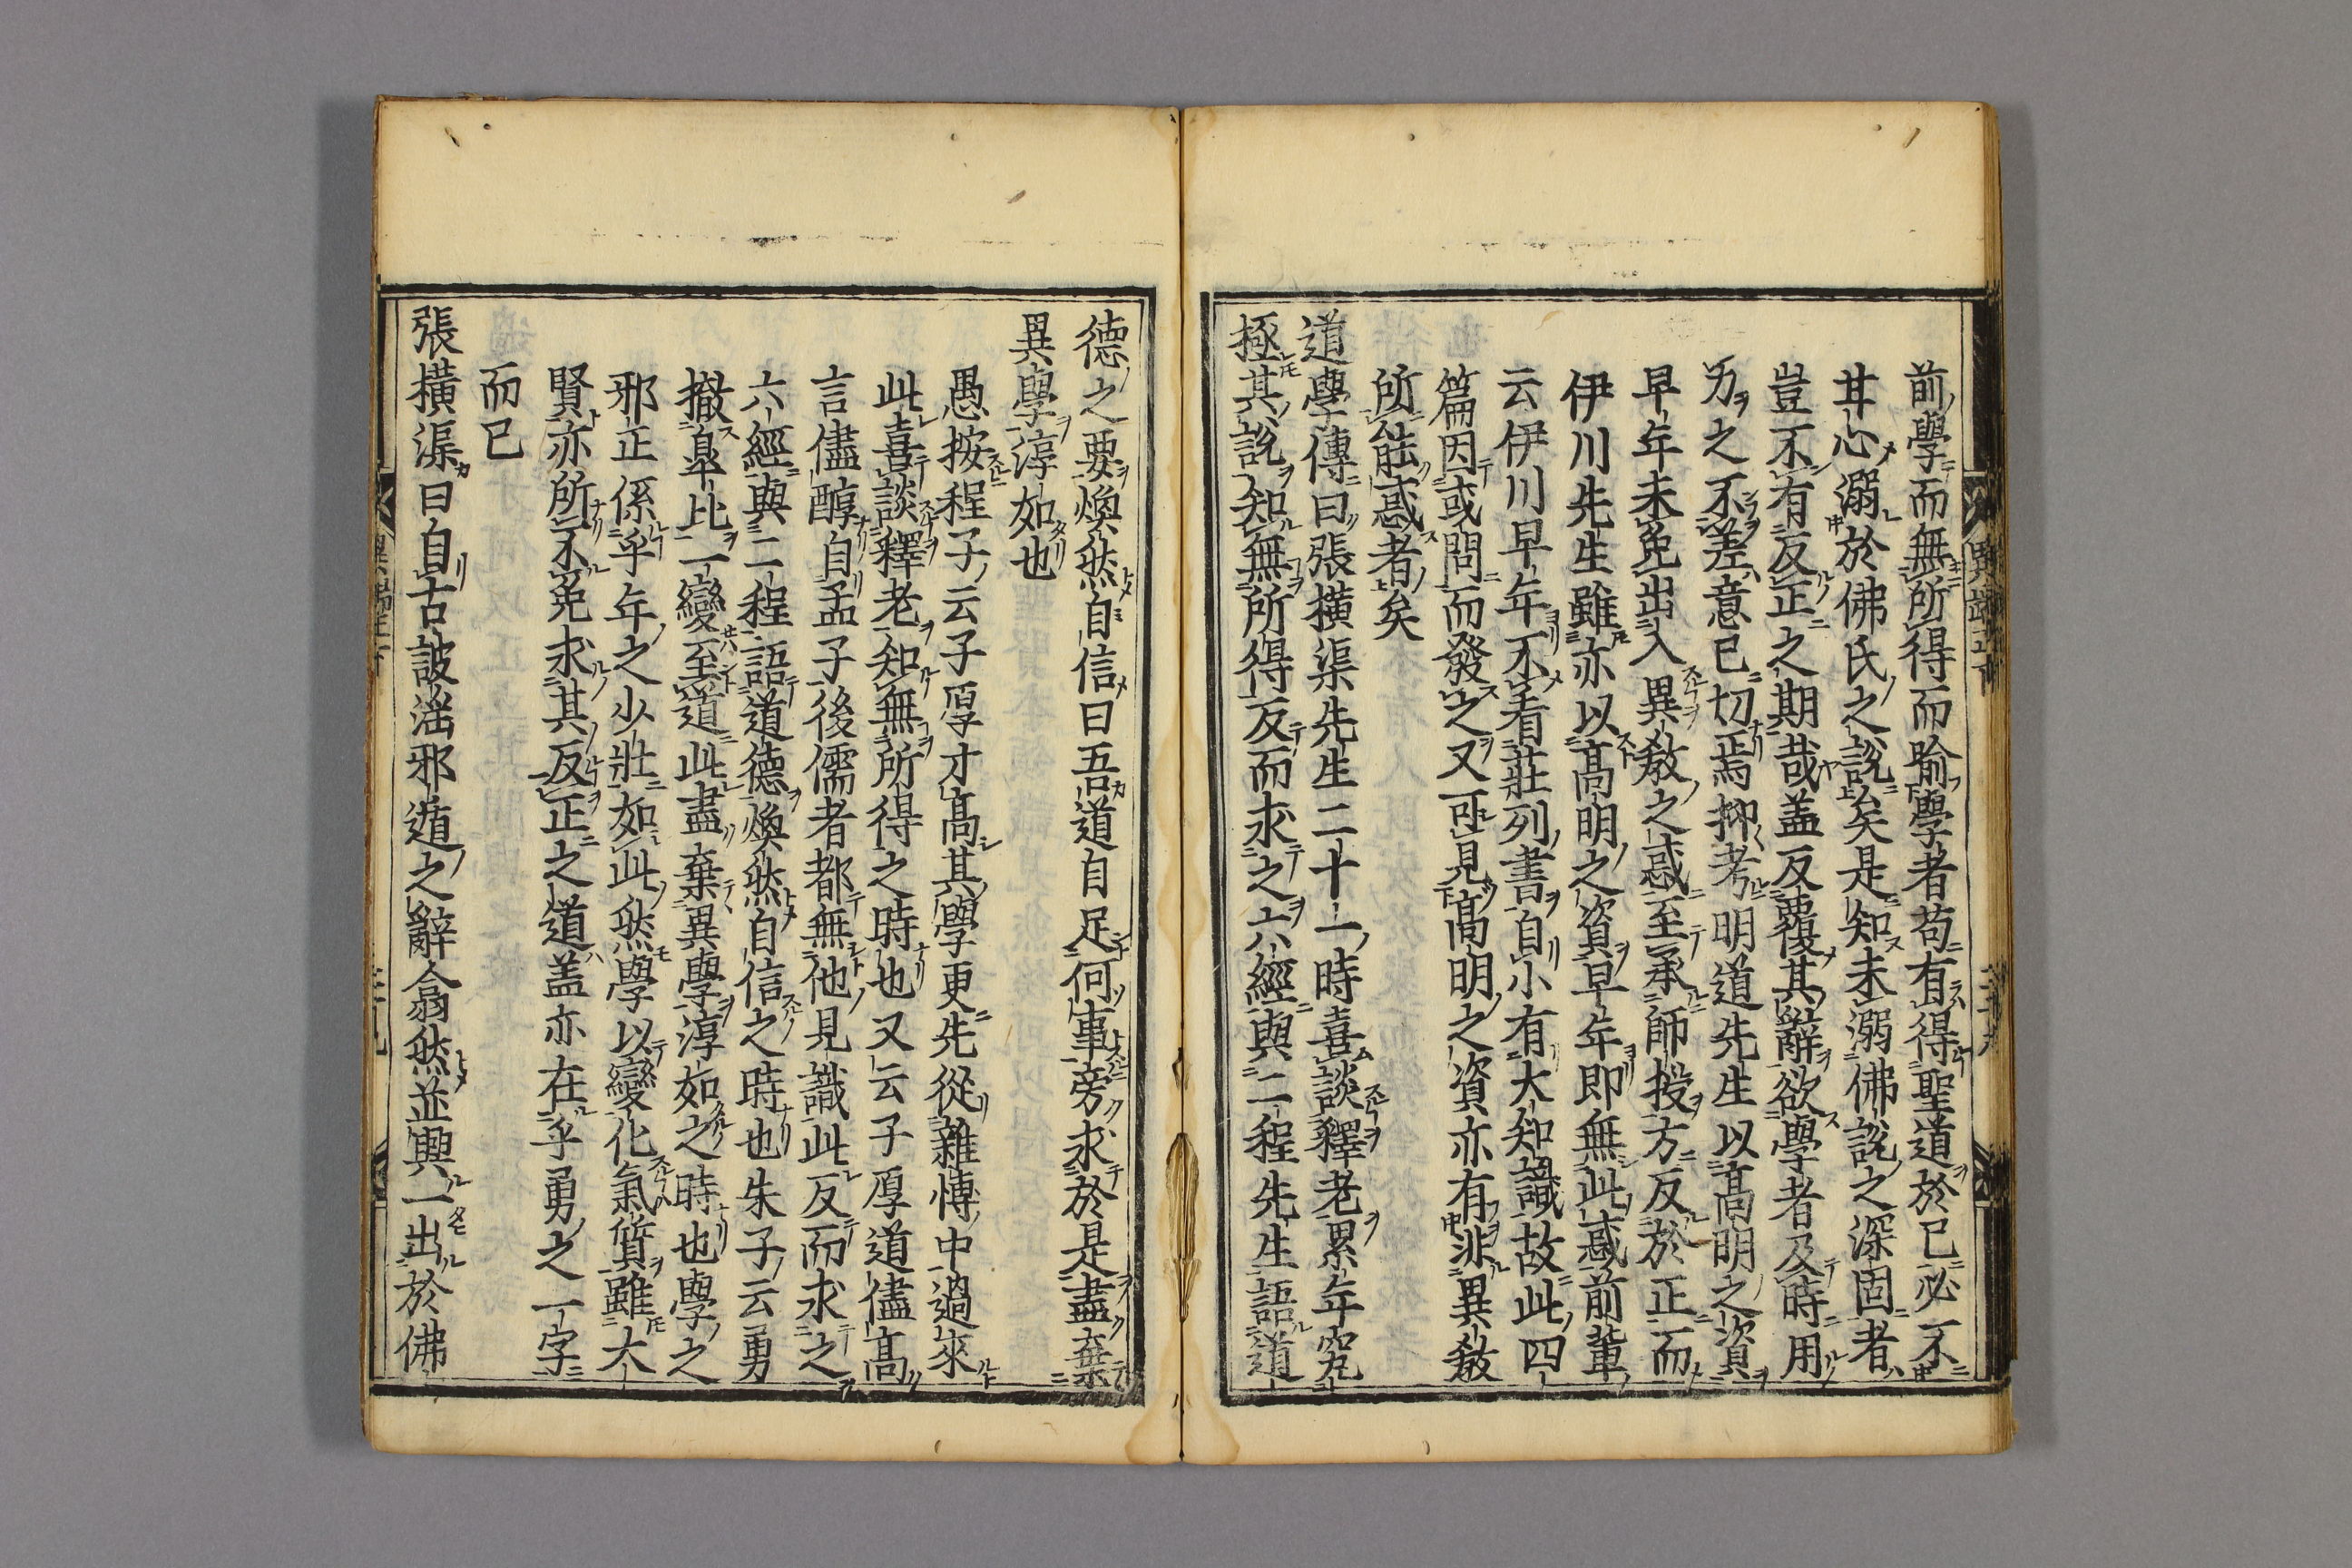 前學而無所得而喻學者苟有得聖道於己必不
甘心溺於佛氏之說矣是知未溺佛說之深固者
豈不有反正之期哉盖反覆其辭欲學者及時用
力之不差意已切焉抑考明道先生以髙明之資
早年未免出入異教之惑至承師授方反於正而
伊川先生雖亦以髙明之資早年即無此惑前輩
云伊川早年不看莊列書自小有大知識故此四
篇因或問而發之又可見髙明之資亦有非異教
所能惑者矣
道學傳曰張橫渠先生二十一時喜談釋老累年究
極其說知無所得反而求之六經與二程先生語道
德之要煥然自信曰吾道自足何事旁求於是盡棄
異學淳如也
愚按程子云子厚才髙其學更先從雜慱中過來
此喜談釋老知無所得之時也又云子厚道儘髙
言儘醇自孟子後儒者都無他見識此反而求之
六經與二程語道德煥然自信之時也朱子云勇
撤皐比一變至道此盡棄異學淳如之時也學之
邪正係乎年之少壯如此然學以變化氣質雖大
賢亦所不免求其反正之道盖亦在乎勇之一字
而已
張橫渠曰自古詖淫邪遁之辭翕然並興一出於佛